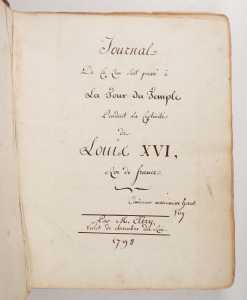 Journal
De Ce Qui s'est passé à
La Tour du Temple
Pendant La Captivité
de
Louis XVI,
Roi de france.
Par M. Cléry
Valet de chambre du Roi.
1798